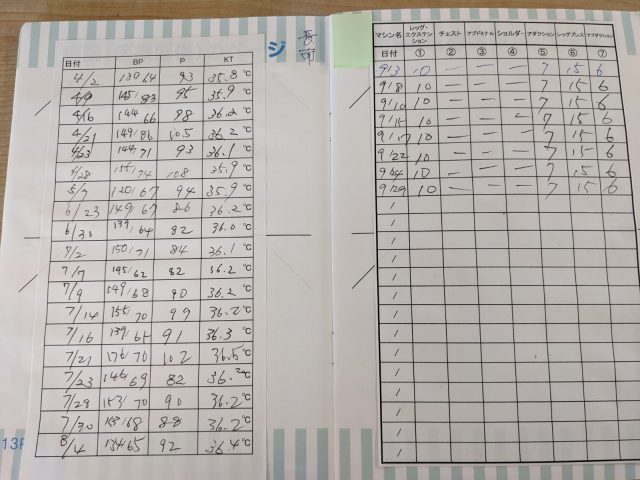 日付 BP P KT
4/2 130/64 93 35.8℃
4/9 145/83 95 35.9℃
4/16 144/66 98 36.2℃
4/21 149/86 36.2℃
4/23 144/71 93 36.1℃
4/28 155/74 108 35.9℃
5/7 120/67 94 35.9℃
6/23 149/67 86 36.2℃
6/30 139/64 82 36.0℃
7/2 150/71 84 36.1℃
7/7 145/62 82 36.2℃
7/9 149/68 90 36.2℃
7/14 155/70 99 36.2℃
7/16 139/65 91 36.3℃
7/21 176/70 102 36.5℃
7/23 146/69 82 ℃
7/28 153/70 90 36.2℃
7/30 88 36.2℃
8/4 92 36.4℃
ジ
マシン名 レッグ・エクステンション チェスト アブドミナル ショルダー アダクション レッグプレス アブダクション
日付 ① ② ③ ④ ⑤ ⑥ ⑦
9/3 10 ー ー ー 7 15 6
9/8 10 ー ー ー 7 15 6
9/10 10 ー ー ー 7 15 6
9/15 10 ー ー 7 15 6
9/17 10 ー ー ー 7 15 6
9/22 10 ー ー ー 7 15 6
10 ー ー ー 7 15 6
9/29 10 ー ー ー 7 15 6